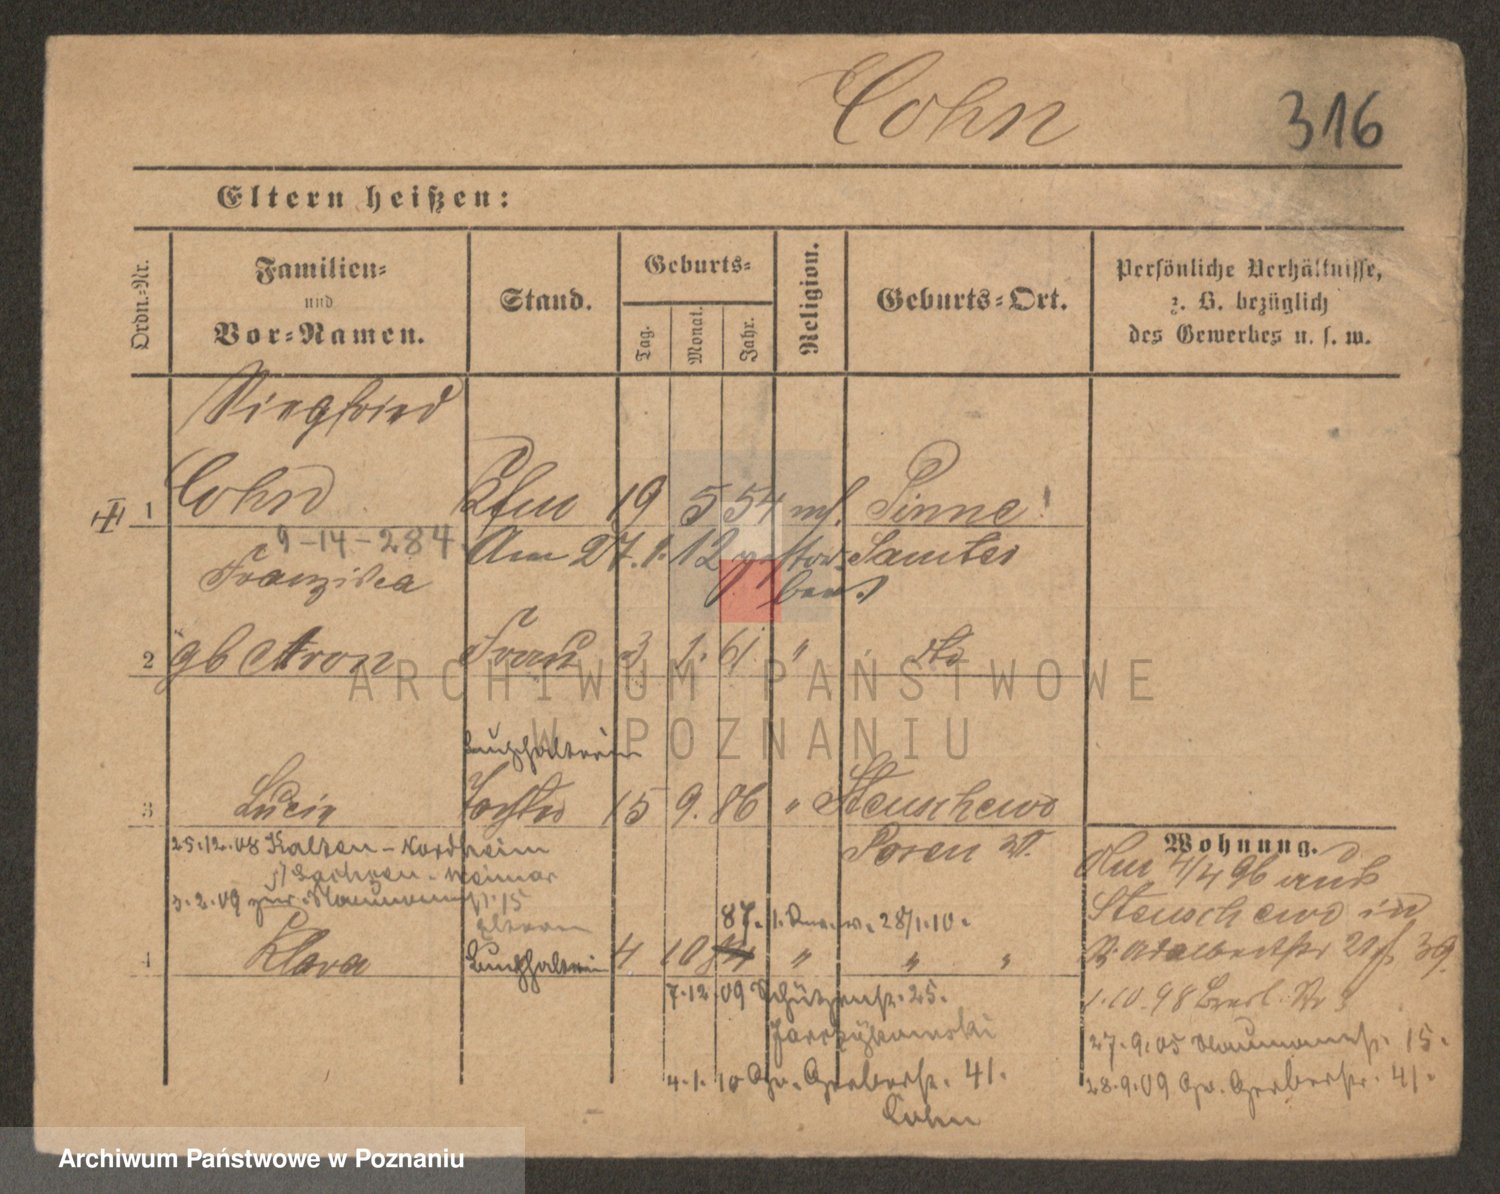 Cohn
316
Eltern heißen:
Ordn.-Nr.
Familien-
und
Vor-Namen.
Stand.
Geburts-
Tag.
Monat.
Jahr.
Religion.
Geburts-Ort.
Persönliche Verhältnisse,
z. B. bezüglich
des Gewerbes u. s. w.
Siegfried
1 Cohn Kfm 19 5 54 mos. Pinne
9-14-284
Am 27.1.12 gestor- Samter
ben
Franziska
2 gb Aron Frau 3 1. 61 " do
Buchhalterin
3 Lucie Tochter 15 9. 86 " Stenschewo
Posen W.
25.12.08 Kalten-Nordheim
Sachsen-Weimar
3.2.09 zur. Naumannst. 15
Eltern
87. 28/1.10.
4 Klara Buchhalterin 4 10 " " "
7.12.09 Schützenst. 25.
4.1.10 Gr. Gerberstr. 41.
Cohn
Wohnung.
Am 7/4 96 aus
Stenschewo in
39.
1.10.98
27.9.05 Naumannst. 15.
28.9.09 Gr. Gerberstr. 41.
ARCHIWUM PAŃSTWOWE
W POZNANIU
Archiwum Państwowe w Poznaniu